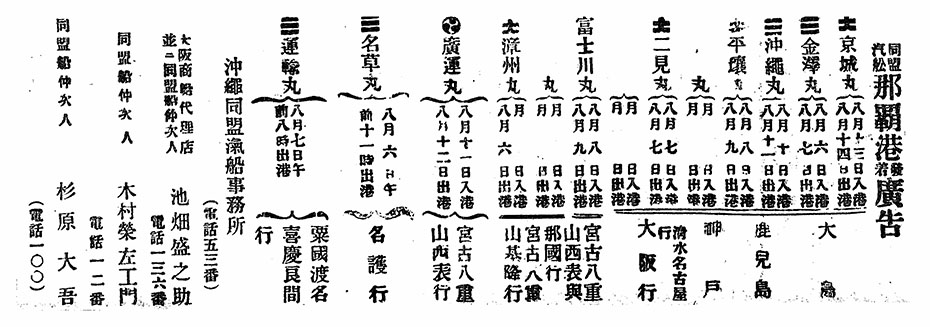 同盟汽船 那覇港發着廣告
京城丸 八月十三日入港 八月十四日出港
金澤丸 八月六日入港 八月七日出港
沖繩丸 八月十日入港 八月十一日出港
平壤丸 八月八日入港 八月九日出港
丸 月日入港 月日出港
二見丸 八月七日入港 八月七日出港
丸 月日入港 月日出港
大島
鹿兒島
神戸
清水名古屋行
大阪行
富士川丸 八月八日入港 八月九日出港
宮古八重山西表與那國行
丸 月日入港 月日出港
漳州丸 八月日入港 月日出港
宮古八重山基隆行
廣運丸 八月十一日入港 八月十二日出港
宮古八重山西表行
名草丸 八月六日午前十一時出港
名護行
運輸丸 八月七日午前八時出港
粟國渡名喜慶良間行
沖繩同盟滊船事務所
(電話五三番)
大阪商船代理店
並ニ同盟船仲次人
池畑盛之助
電話一三六番
同盟船仲次人
木村榮左工門
電話一二番
同盟船仲次人
杉原大吾
(電話一〇〇)